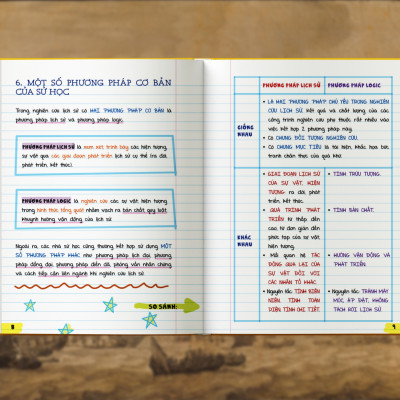 6. MỘT SỐ PHƯƠNG PHÁP CƠ BẢN
CỦA SỬ HỌC
Trong nghiên cứu lịch sử có HAI PHƯƠNG PHÁP CƠ BẢN là
phương pháp lịch sử và phương pháp logic.
PHƯƠNG PHÁP LỊCH SỬ là xem xét trình bày các hiện tượng,
sự vật qua các giai đoạn phát triển lịch sử cụ thể (ra đời,
phát triển, kết thúc).
PHƯƠNG PHÁP LOGIC là nghiên cứu các sự vật, hiện tượng
trong hình thức tổng quát nhằm vạch ra bản chất, quy luật,
khuynh hướng vận động của lịch sử.
Ngoài ra, các nhà sử học cũng thường kết hợp sử dụng MỘT
SỐ PHƯƠNG PHÁP KHÁC như: phương pháp lịch đại, phương
pháp đồng đại, phương pháp điền dã, phỏng vấn nhân chứng,
và cách tiếp cận liên ngành khi nghiên cứu lịch sử.
SO SÁNH:
8
PHƯƠNG PHÁP LỊCH SỬ
PHƯƠNG PHÁP LOGIC
GIỐNG
NHAU
• LÀ HAI PHƯƠNG PHÁP CHỦ YẾU TRONG NGHIÊN
CỨU LỊCH SỬ, kết quả và chất lượng của các
công trình nghiên cứu phụ thuộc rất nhiều vào
việc kết hợp 2 phương pháp này.
• Có CHUNG ĐỐI TƯỢNG NGHIÊN CỨU.
• Có CHUNG MỤC TIÊU là tái hiện, khắc họa bức
tranh chân thực của quá khứ.
KHÁC
NHAU
• GIAI ĐOẠN LỊCH SỬ
CỦA SỰ VẬT, HIỆN
TƯỢNG: ra đời, phát
triển, kết thúc.
• TÍNH TRỪU TƯỢNG.
• QUÁ TRÌNH PHÁT
TRIỂN từ thấp đến
cao, từ đơn giản đến
phức tạp của sự vật,
hiện tượng.
• TÍNH BẢN CHẤT.
• Mối quan hệ TÁC
ĐỘNG QUA LẠI CỦA
SỰ VẬT ĐỐI VỚI
CÁC NHÂN TỐ KHÁC.
• HƯỚNG VẬN ĐỘNG VÀ
PHÁT TRIỂN.
• Nguyên tắc: TÍNH BIÊN
NIÊN, TÍNH TOÀN
DIỆN, TÍNH CHI TIẾT.
• Nguyên tắc: TRÁNH MÁY
MÓC, ÁP ĐẶT, KHÔNG
TÁCH RỜI LỊCH SỬ.
9